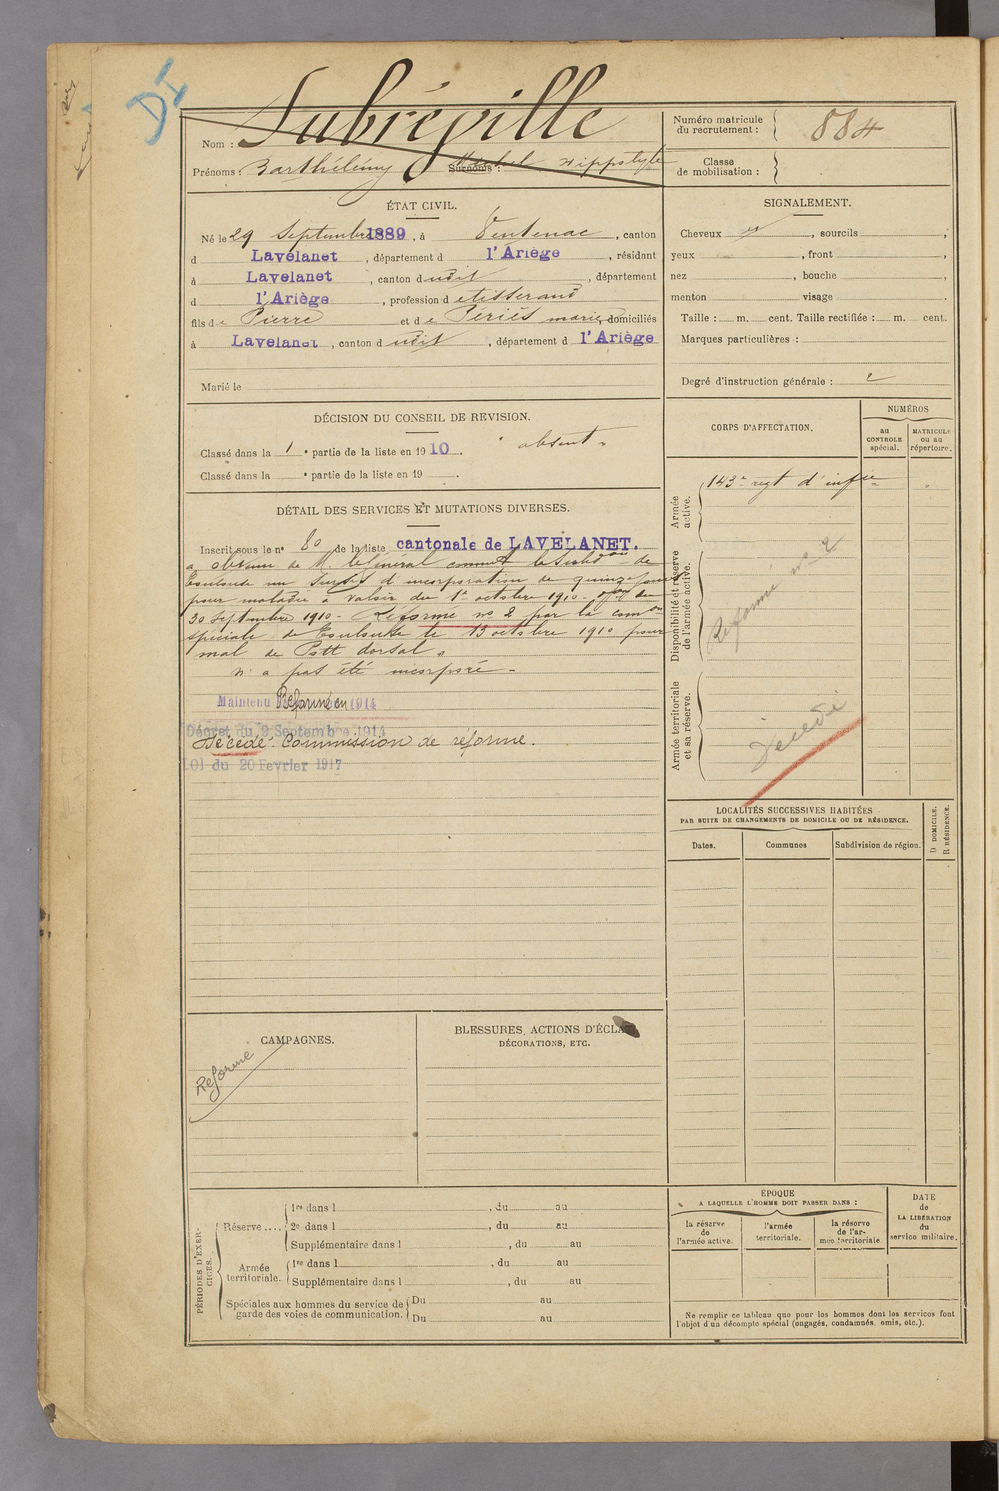 DI
Nom : Subréville
Numéro matricule du recrutement : 884
Prénoms : Barthélémy Surnoms : Michel Hippolyte
Classe de mobilisation :
ÉTAT CIVIL.
Né le 29 Septembre 1889, à Ventenac, canton
d Lavelanet, département d l'Ariège, résidant
à Lavelanet, canton dudit, département
d l'Ariège, profession de tisserand
fils de Pierre et de Périès marie, domiciliés
à Lavelanet, canton dudit, département d l'Ariège
Marié le
SIGNALEMENT.
Cheveux , sourcils ,
yeux , front ,
nez , bouche
menton visage .
Taille : m. cent. Taille rectifiée : m. cent.
Marques particulières :
Degré d'instruction générale : 2
DÉCISION DU CONSEIL DE REVISION.
Classé dans la 1e partie de la liste en 1910. "absent"
Classé dans la e partie de la liste en 19 .
CORPS D'AFFECTATION.
NUMÉROS
au CONTROLE spécial.
MATRICULE ou au répertoire.
Armée active.
143e regt d'infie
Disponibilité et réserve de l'armée active.
Reformé n° 2
Armée territoriale et sa réserve.
Décédé
DÉTAIL DES SERVICES ET MUTATIONS DIVERSES.
Inscrit sous le n° 80 de la liste cantonale de LAVELANET.
a obtenu de M. le Général commdt la Subdon de
Toulouse un Sursis d'incorporation de quinze jours
pour maladie à valoir du 1er octobre 1910 - du
30 septembre 1910 - Réformé n° 2 par la comon
spéciale de Toulouse le 13 octobre 1910 pour
mal de Pott dorsal.
n'a pas été incorporé -
Maintenu Réformé en 1914
Décret du 9 Septembre 1914
Décédé. Commission de reforme.
Loi du 20 Fevrier 1917
LOCALITÉS SUCCESSIVES HABITÉES
PAR SUITE DE CHANGEMENTS DE DOMICILE OU DE RÉSIDENCE.
D. DOMICILE.
R. RÉSIDENCE.
Dates.
Communes
Subdivision de région.
CAMPAGNES.
Reformé
BLESSURES, ACTIONS D'ÉCLAT,
DÉCORATIONS, ETC.
PÉRIODES D'EXERCICES.
Réserve .... 1re dans l , du au
2e dans l , du au
Supplémentaire dans l , du au
Armée territoriale. 1re dans l , du au
Supplémentaire dans l , du au
Spéciales aux hommes du service de garde des voies de communication. Du au
Du au
ÉPOQUE
A LAQUELLE L'HOMME DOIT PASSER DANS :
la réserve de l'armée active.
l'armée territoriale.
la réserve de l'armée territoriale
DATE de LA LIBÉRATION du service militaire.
Ne remplir ce tableau que pour les hommes dont les services font
l'objet d'un décompte spécial (engagés, condamnés, omis, etc.).